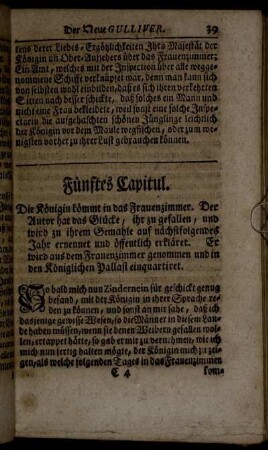 Der Neue GULLIVER. 39
tens derer Liebes-Ergötzlichkeiten Ihro Majestät der
Königin un Ober-Aufsehers über das Frauenzimmer;
Ein Amt, welches mit der Inspection über alle weggenommene
Schiffe verknüpfet war, denn man kan sich
von selbsten wohl einbilden, daß es sich ihren verkehrten
Sitten nach besser schickte, daß solches ein Mann und
nicht eine Frau bekleidete, weil sonst eine solche Inspectorin
die aufgehaschten schönen Jünglinge leichtlich
der Königin vor dem Maule wegfischen, oder zum wenigsten
vorher zu ihrer Lust gebrauchen können.
Fünftes Capitul.
Die Königin kömmt in das Frauenzimmer. Der
Autor hat das Glücke, ihr zu gefallen, und
wird zu ihrem Gemahle auf nächstfolgendes
Jahr ernennet und öffentlich erkläret. Er
wird aus dem Frauenzimmer genommen und in
den Königlichen Pallast einquartiret.
So bald mich nun Zindernein für geschickt genug
befand, mit der Königin in ihrer Sprache reden
zu können, und sonst an mir sahe, daß ich
dasjenige gewisse Wesen, so die Männer in diesem Lande
haben müssen, wenn sie denen Weibern gefallen wollen,
ertappet hätte, so gab er mir zu vernehmen, wie ich
mich nun fertig halten mögte, der Königin mich zu zeigen,
als welche folgenden Tages in das Frauenzimmer
C 4 kom-